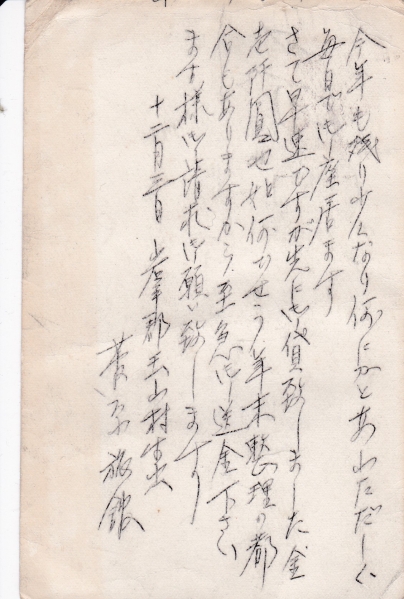 今年も残り少くなり何にかとあわただしく
毎日で御座居ます
さて早速ですが先に御貸致しました金
圓也 何かせう年末整理の都
合もありますから至急御送金下さい
ます様御請求御願い致します
十二月三日 岩手郡玉山村
旅館